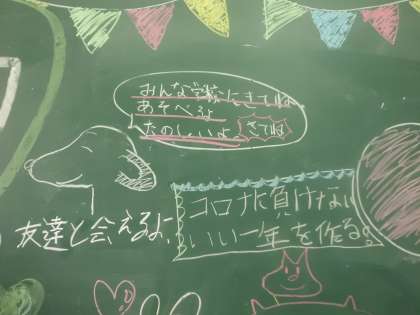 みんな学校にきてね
あそべるよ
たのしいよ。きてね
友達と会えるよ、
コロナに負けない
いい一年を作る。